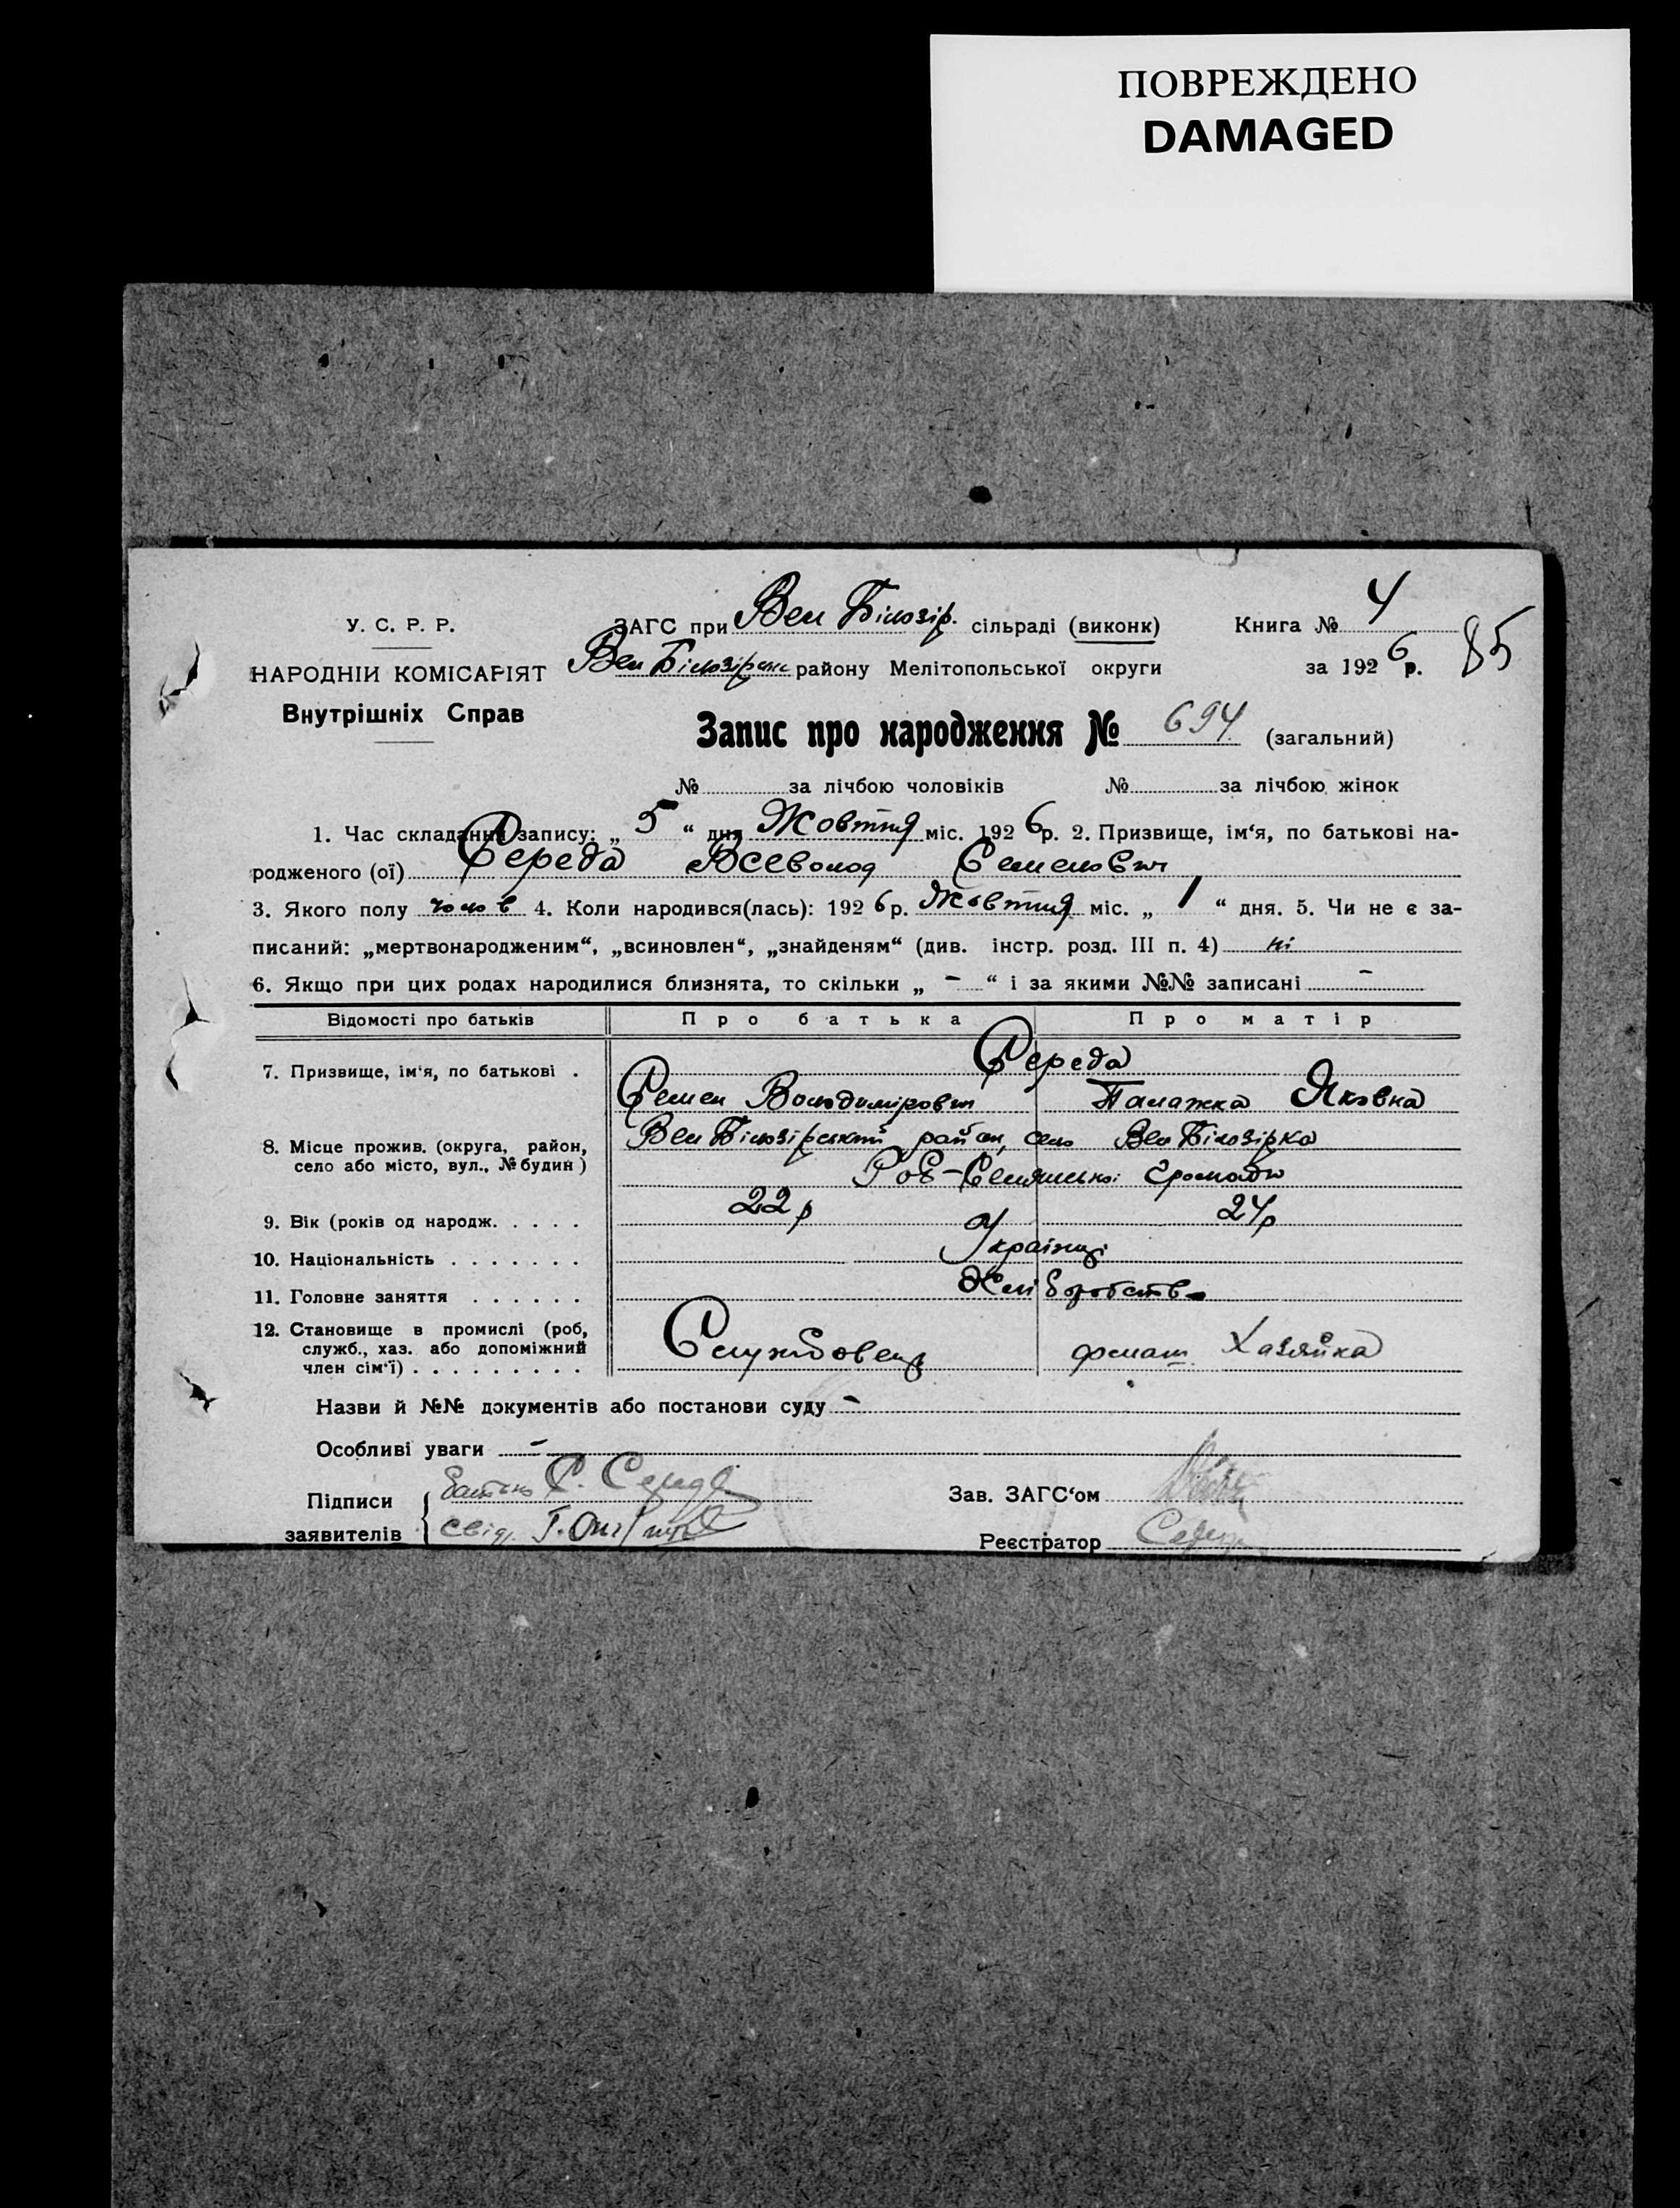 ПОВРЕЖДЕНО
DAMAGED
У. С. Р. Р.
НАРОДНІЙ КОМІСАРІЯТ
Внутрішніх Справ
ЗАГС при Вел Білозір. сільраді (виконк)
Вел Білозірськ району Мелітопольської округи
Книга № 4
за 1926 р.
85
Запис про народження № 694 (загальний)
№ за лічбою чоловіків № за лічбою жінок
1. Час складання запису: „ 5 “ дня Жовтня міс. 1926 р. 2. Призвище, ім‘я, по батькові на-
родженого (ої) Середа Всеволод Семенович
3. Якого полу чолов 4. Коли народився(лась): 1926 р. Жовтня міс. „ 1 “ дня. 5. Чи не є за-
писаний: „мертвонародженим“, „всиновлен“, „знайденям“ (див. інстр. розд. III п. 4) ні
6. Якщо при цих родах народилися близнята, то скільки „ – “ і за якими №№ записані –
Відомості про батьків Про батька Про матір
7. Призвище, ім‘я, по батькові . Середа
Семен Володимірович Палажка Яковна
8. Місце прожив. (округа, район, Вел Білозірський район, село Вел Білозірка
село або місто, вул., № будин) Роб-Селянської громади
9. Вік (років од народж. . . . . 22 р 24 р
10. Національність . . . . . . . Українці
11. Головне заняття . . . . . . Хліборобство
12. Становище в промислі (роб,
служб., хаз. або допоміжний Службовець Хазяйка
член сім‘ї) . . . . . . . . .
Назви й №№ документів або постанови суду –
Особливі уваги –
Підписи Батько С. Середа
заявителів свід. Г.
Зав. ЗАГС‘ом
Реєстратор